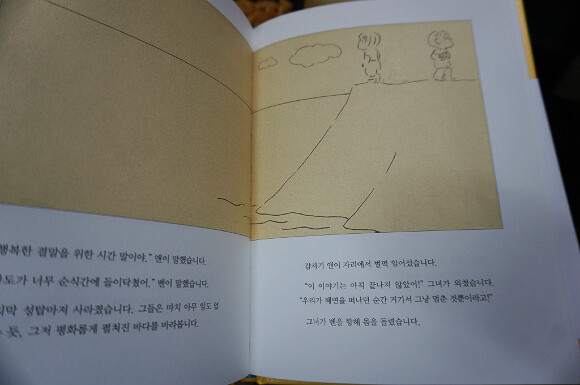 행복한 결말을 위한 시간 말이야." 앤이 말했습니다.
도가 너무 순식간에 들이닥쳤어." 벤이 말했습니다.
막 성탑마저 사라졌습니다. 그들은 마치 아무 일도 없
듯, 그저 평화롭게 펼쳐진 바다를 바라봅니다.
갑자기 앤이 자리에서 벌떡 일어섰습니다.
"이 이야기는 아직 끝나지 않았어!" 그녀가 외쳤습니다.
"우리가 해변을 떠나던 순간 거기서 그냥 멈춘 것뿐이라고!"
그녀가 벤을 향해 몸을 돌렸습니다.